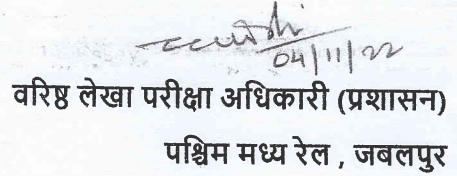 04/11/22
वरिष्ठ लेखा परीक्षा अधिकारी (प्रशासन)
पश्चिम मध्य रेल , जबलपुर